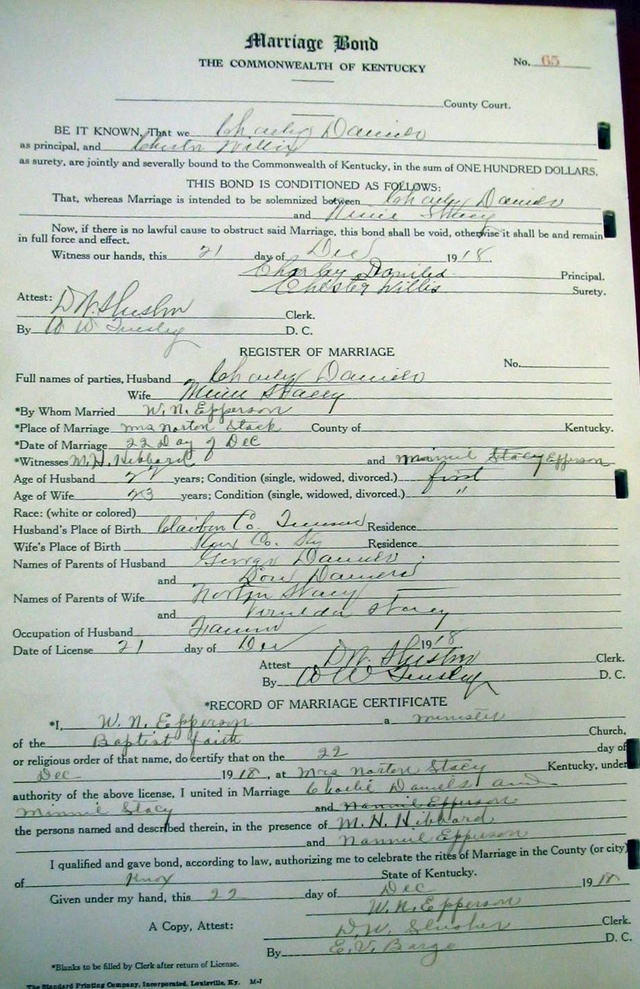 Marriage Bond
THE COMMONWEALTH OF KENTUCKY
No. 65
County Court.
BE IT KNOWN, That we Charley Daniels
as principal, and Chester Willis
as surety, are jointly and severally bound to the Commonwealth of Kentucky, in the sum of ONE HUNDRED DOLLARS.
THIS BOND IS CONDITIONED AS FOLLOWS:
That, whereas Marriage is intended to be solemnized between Charley Daniels
and Stacy
Now, if there is no lawful cause to obstruct said Marriage, this bond shall be void, otherwise it shall be and remain
in full force and effect.
Witness our hands, this 21 day of Dec 1918.
Charley Daniels Principal.
Chester Willis Surety.
Attest:
D. W. Slusher Clerk.
By W W Tinsley D. C.
REGISTER OF MARRIAGE
No.
Full names of parties, Husband Charley Daniels
Wife Stacey
*By Whom Married W. N. Epperson
*Place of Marriage Mrs Norton Stack County of Kentucky.
*Date of Marriage 22 Day of Dec
*Witnesses M. H. Hibbard and Stacy Epperson
Age of Husband 22 years; Condition (single, widowed, divorced.) first
Age of Wife 23 years; Condition (single, widowed, divorced.) "
Race: (white or colored)
Husband's Place of Birth Claiborn Co. Residence
Wife's Place of Birth Knox Co. Ky Residence
Names of Parents of Husband George Daniels
and Daniels
Names of Parents of Wife Norton Stacy
and Stacey
Occupation of Husband Farmer
Date of License 21 day of Dec 1918
Attest D. W. Slusher Clerk.
By W W Tinsley D. C.
*RECORD OF MARRIAGE CERTIFICATE
*I, W. N. Epperson a minister
of the Baptist faith Church,
or religious order of that name, do certify that on the 22 day of
Dec 1918, at Mrs Norton Stacy Kentucky, under
authority of the above license, I united in Marriage Charlie Daniels and
Minnie Stacy and Nannie Epperson
the persons named and described therein, in the presence of M. H. Hibbard
and Nannie Epperson
I qualified and gave bond, according to law, authorizing me to celebrate the rites of Marriage in the County (or city)
of Knox State of Kentucky.
Given under my hand, this 22 day of Dec 1918
W. N. Epperson
A Copy, Attest: D. W. Slusher Clerk.
By E. V. Bargo D. C.
*Blanks to be filled by Clerk after return of License.
The Standard Printing Company, Incorporated, Louisville, Ky. M-1